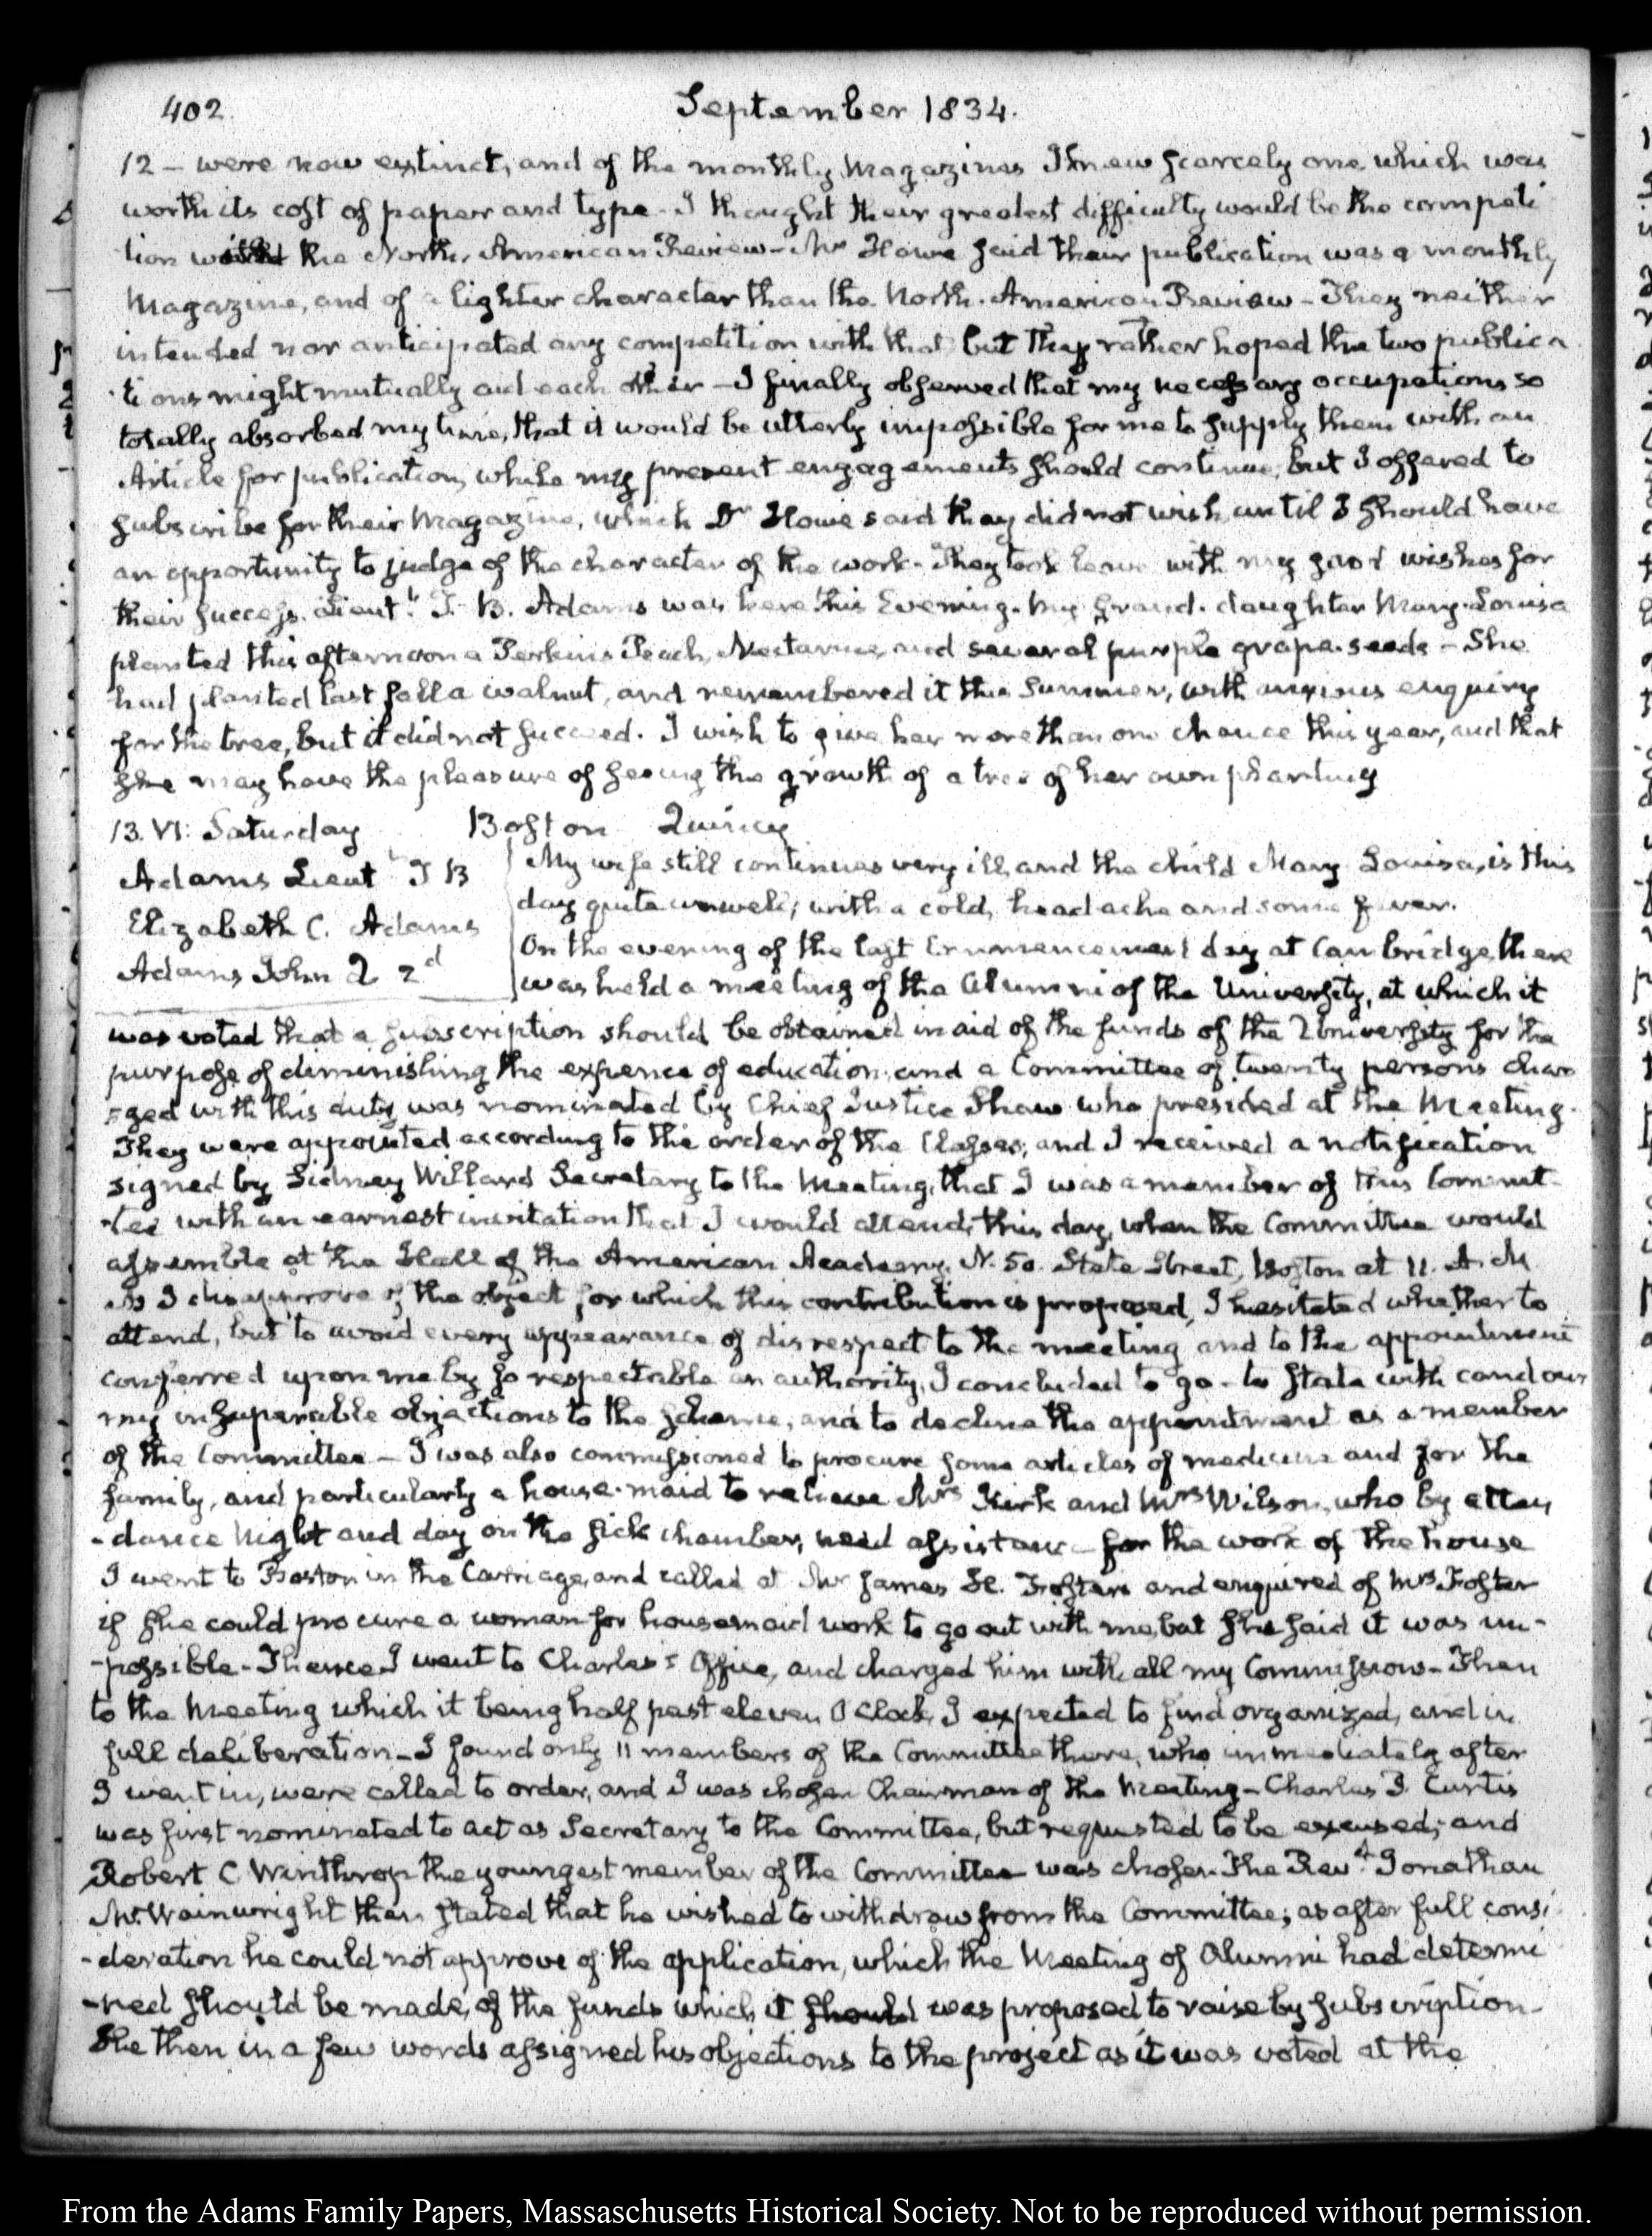 402.
September 1834.
12 - were now extinct, and of the monthly Magazines I knew scarcely one which was
worth its cost of paper and type - I thought their greatest difficulty would be the competi
tion with the North American Review - Mr Howe said their publication was a monthly
Magazine, and of a lighter character than the North American Review - They neither
intended nor anticipated any competition with that but they rather hoped the two publica
tions might mutually aid each other - I finally observed that my necessary occupations so
totally absorbed my time, that it would be utterly impossible for me to supply them with an
Article for publication, while my present engagements should continue, but I offered to
subscribe for their Magazine, which Dr Howe said they did not wish, until I should have
an opportunity to judge of the character of the work - They took leave with my good wishes for
their success. Lieut. T. B. Adams was here this Evening. My Grand-daughter Mary-Louisa
planted this afternoon a Perkins Peach, Nectarine, and several purple grape-seeds - She
had planted last fall a walnut, and remembered it this Summer, with anxious enquiry
for the tree, but it did not succeed. I wish to give her more than one chance this year, and that
she may have the pleasure of seeing the growth of a tree of her own planting
13. VI: Saturday Boston Quincy
Adams Lieut T B
Elizabeth C. Adams
Adams John Q 2d
My wife still continues very ill, and the child Mary Louisa, is this
day quite unwell; with a cold, headache and some fever.
On the evening of the last Commencement day at Cambridge, there
was held a meeting of the Alumni of the University, at which it
was voted that a subscription should be obtained in aid of the funds of the University for the
purpose of diminishing the expence of education, and a Committee of twenty persons char
-ged with this duty was nominated by Chief Justice Shaw who presided at the Meeting.
They were appointed according to the order of the Classes, and I received a notification
signed by Sidney Willard Secretary to the Meeting, that I was a member of this Commit-
-tee with an earnest invitation that I would attend, this day, when the Committee would
assemble at the Hall of the American Academy, N. 50. State Street, Boston at 11. A.M
As I disapprove of the object for which this contribution is proposed, I hesitated whether to
attend, but to avoid every appearance of disrespect to the meeting and to the appointment
conferred upon me by so respectable an authority, I concluded to go - to state with candour
my insuperable objections to the scheme, and to decline the appointment as a member
of the Committee - I was also commissioned to procure some articles of medicine and for the
family, and particularly a house-maid to relieve Mrs Kirk and Mrs Wilson, who by atten
-dance night and day on the sick chamber, need assistance for the work of the house
I went to Boston in the Carriage, and called at Mr James H. Foster and enquired of Mrs Foster
if she could procure a woman for housemaid work to go out with me, but she said it was im-
-possible - Thence I went to Charles's Office, and charged him with all my Commissions - Then
to the Meeting which it being half past eleven O'Clock, I expected to find organized, and in
full deliberation - I found only 11 members of the Committee there, who immediately after
I went in, were called to order, and I was chosen Chairman of the Meeting - Charles P. Curtis
was first nominated to act as Secretary to the Committee, but requested to be excused; and
Robert C Winthrop the youngest member of the Committee was chosen. The Revd. Jonathan
M. Wainwright then stated that he wished to withdraw from the Committee; as after full consi
-deration he could not approve of the application, which the Meeting of Alumni had determi
-ned should be made, of the funds which it should was proposed to raise by subscription -
He then in a few words assigned his objections to the project as it was voted at the
From the Adams Family Papers, Massachusetts Historical Society. Not to be reproduced without permission.